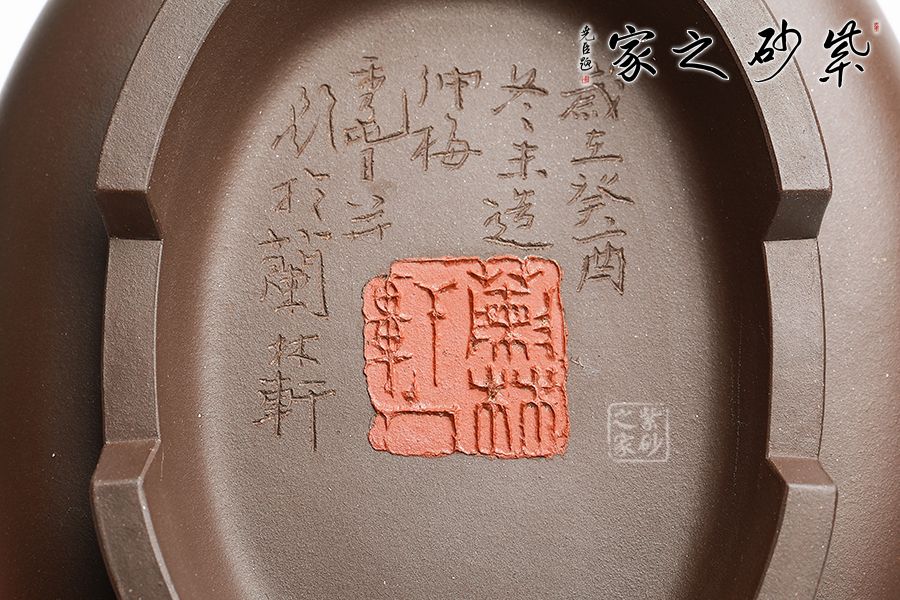 紫砂之家
堯臣題
歲在癸酉
冬末造
仲梅
并
於蘭林軒
蘭林
軒
紫砂
之家